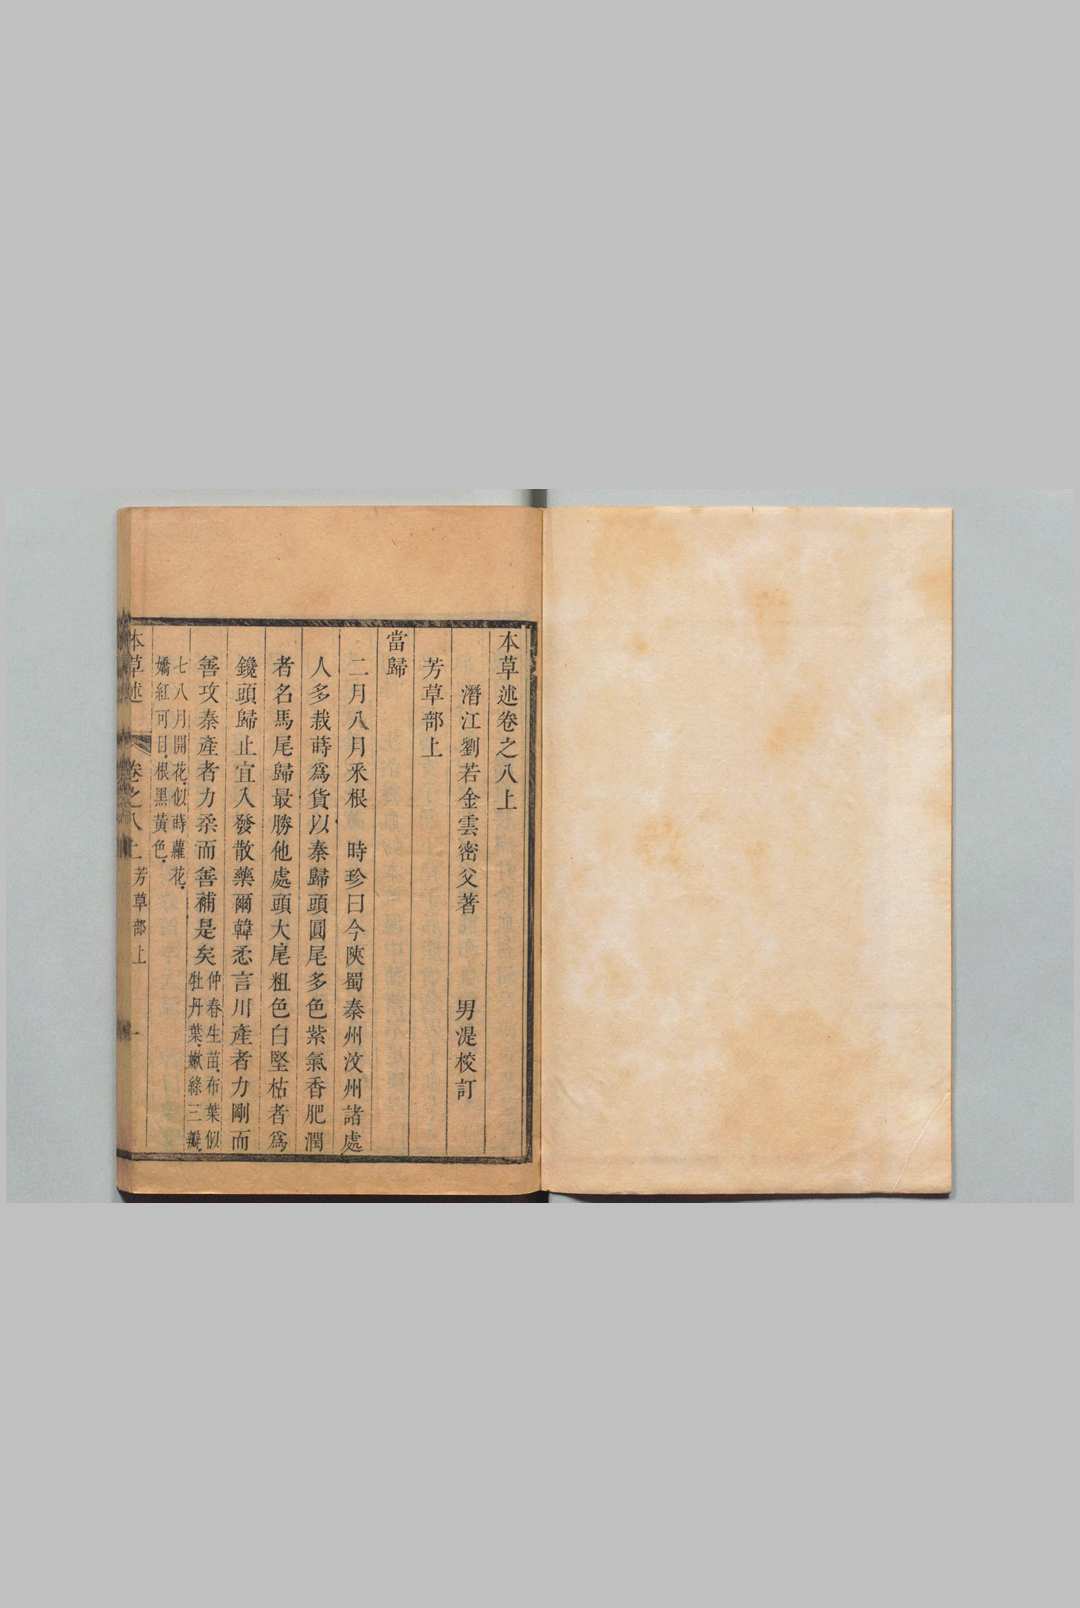 本草述卷之八上
潛江劉若金雲密父著　男湜校訂
芳草部上
當歸
二月八月采根　時珍曰今陝蜀秦州汶州諸處
人多栽蒔爲貨以秦歸頭圓尾多色紫氣香肥潤
者名馬尾歸最勝他處頭大尾粗色白堅枯者爲
鑱頭歸止宜入發散藥爾韓𢙢言川產者力剛而
善攻秦產者力柔而善補是矣
仲春生苗布葉似
牡丹葉嫩綠三瓣
七八月開花似蒔蘿花
嬌紅可目根黑黃色
本草述　卷之八上　芳草部上　一